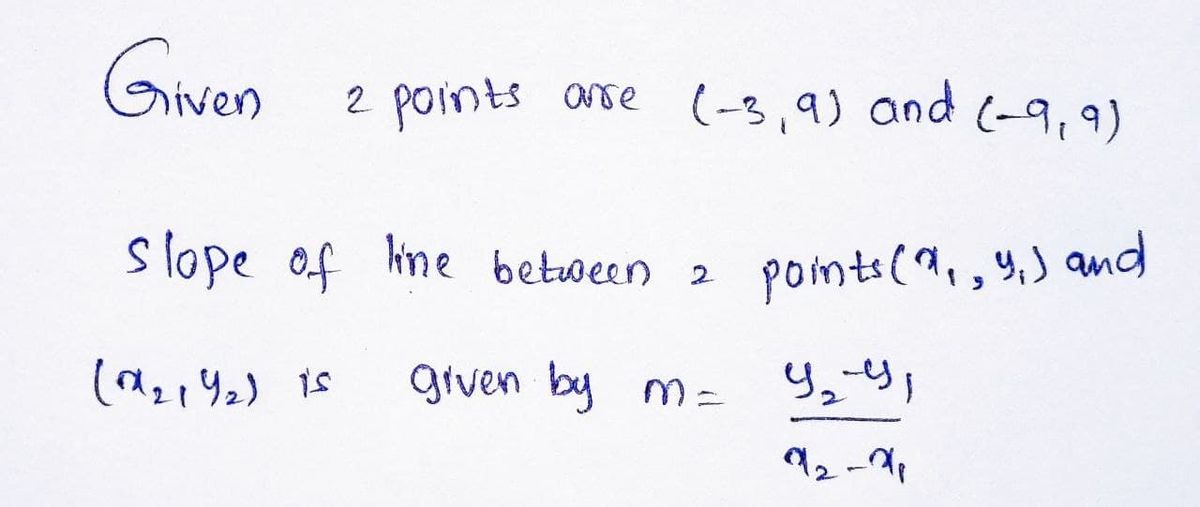 Given 2 points are (-3,9) and (-9,9)
slope of line between 2 points (x₁, y₁) and
(x₂, y₂) is given by m = y₂-y₁
x₂-x₁